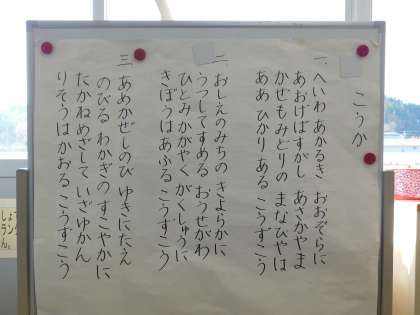 こうか
一、へいわ あかるき おおぞらに
あおげばすがし あさかやま
かぜもみどりの まなびやは
ああ ひかり ある こうずこう
二、おしえのみちの きよらかに
うつしてすめる おうせがわ
ひとみかがやく がくしゅうに
きぼうはあふる こうずこう
三、あめかぜしのび ゆきにたえ
のびる わかぎの すこやかに
たかねめざして いざゆかん
りそうはかおる こうずこう